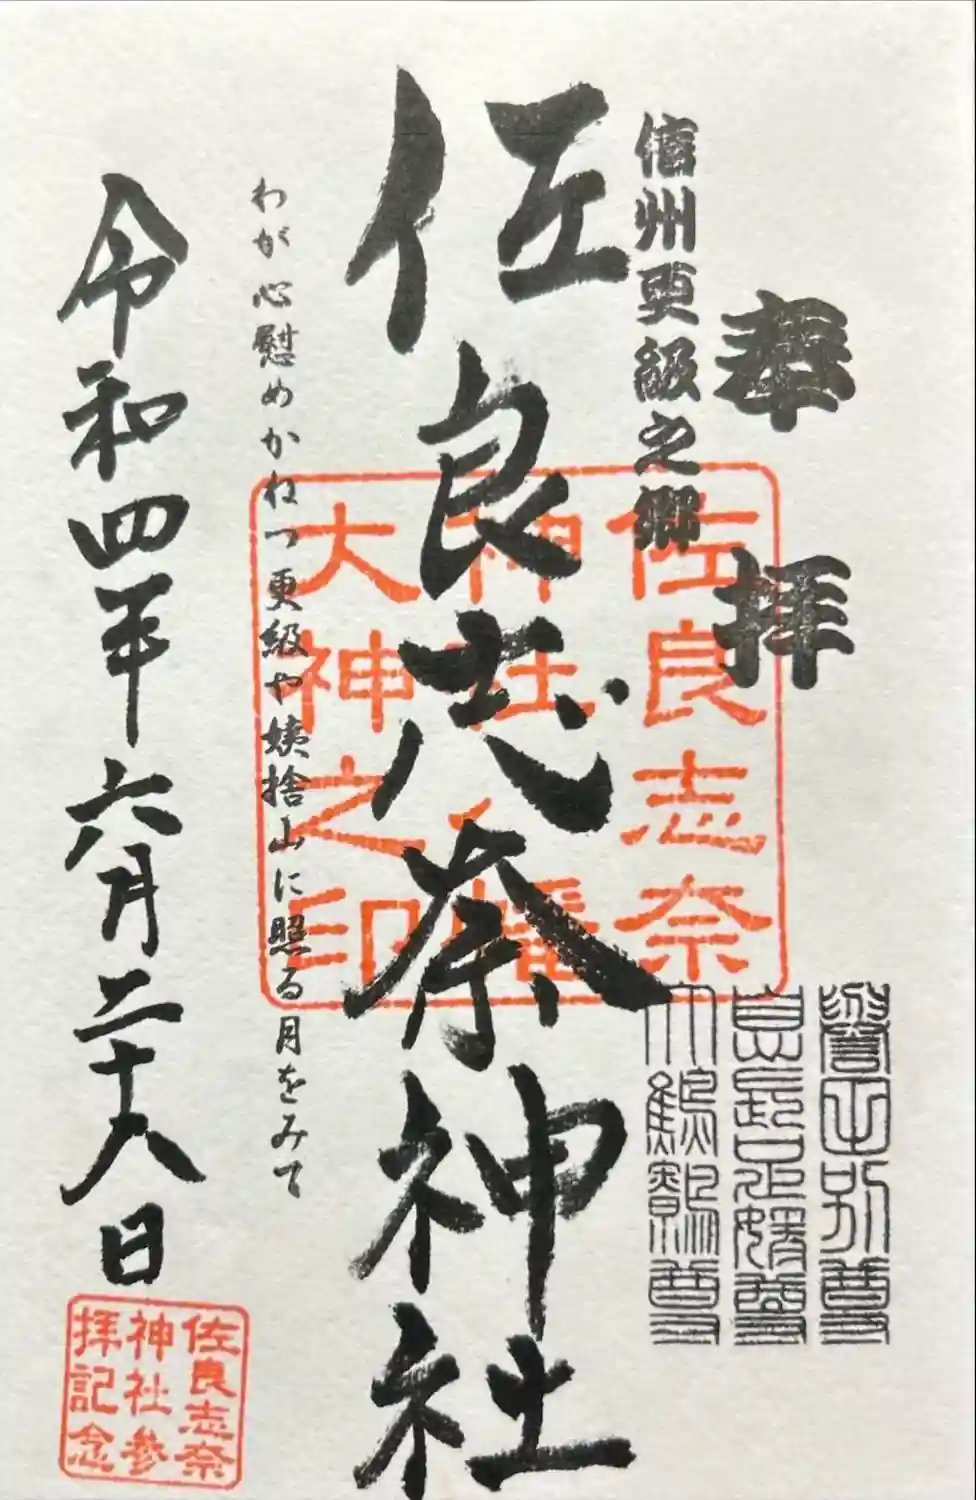 奉拝
信州更級之郷
佐良志奈神社
わが心慰めかねつ更級や姨捨山に照る月をみて
令和四年六月二十八日
佐良志奈
神社
大神之印
誉田別尊
大鷦鷯尊
佐良志奈
神社参
拝記念